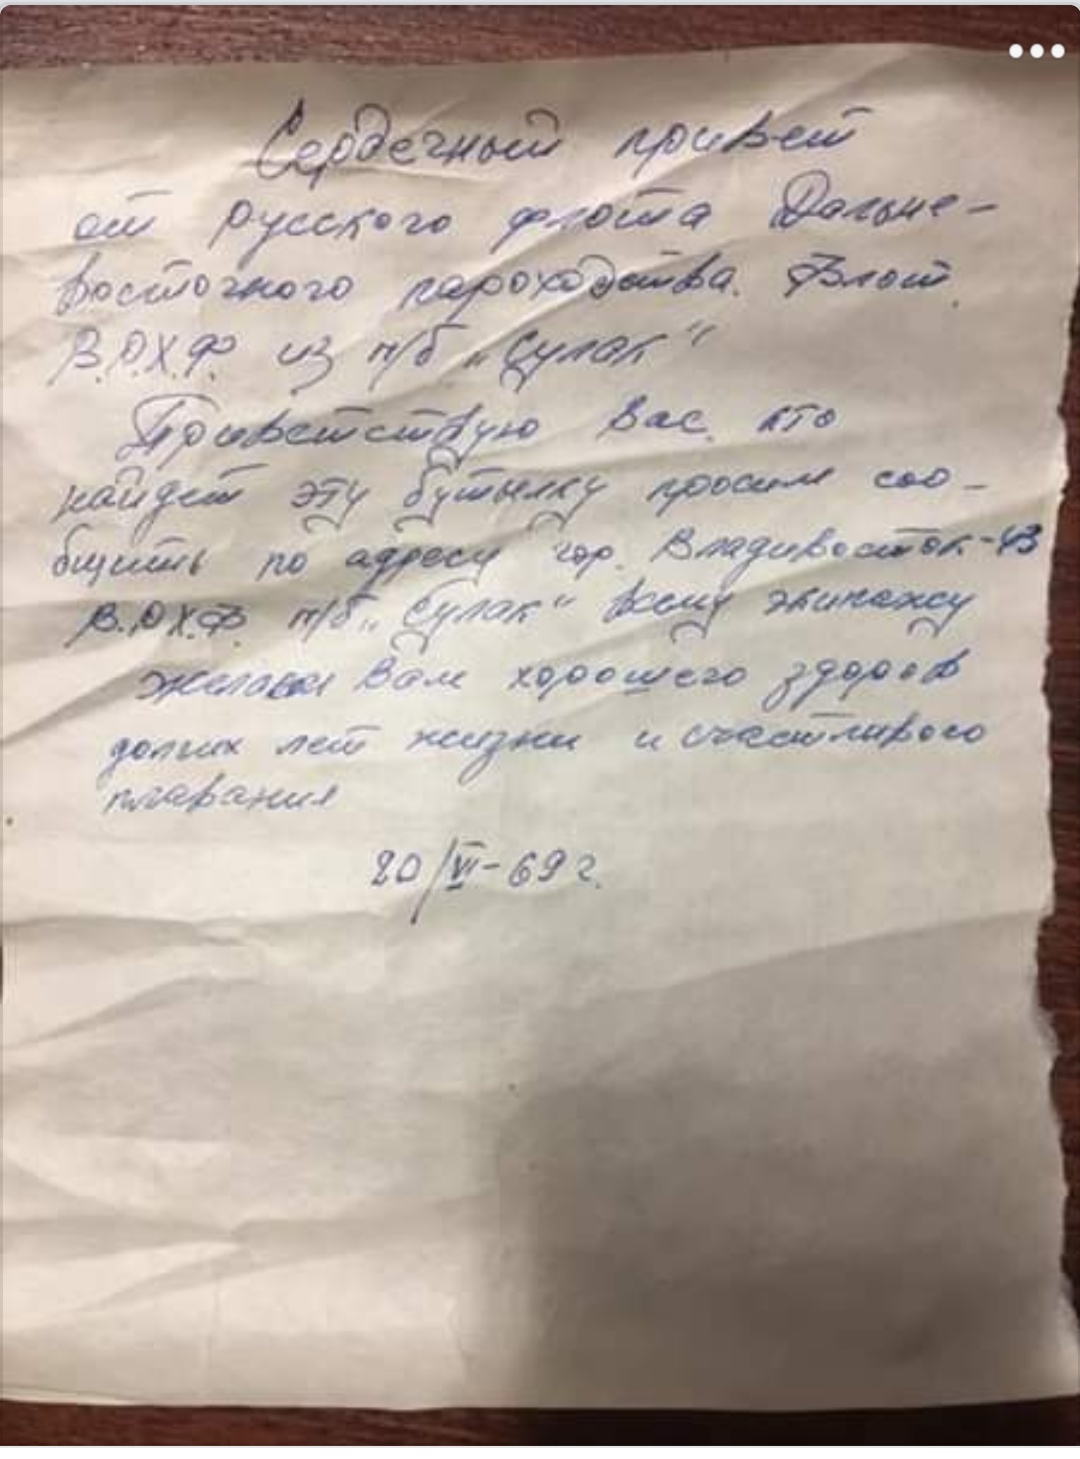 Сердечный привет
от русского флота Дальне-
восточного пароходства. Флот
В.Р.Х.Ф. из п/б „Сулак"
Приветствую Вас, кто
найдет эту бутылку просим соо-
бщить по адресу гор. Владивосток-43
В.Р.Х.Ф. п/б „Сулак" всему экипажу
желаем Вам хорошего здоров
долгих лет жизни и счастливого
плавания
20/VI-69 г.